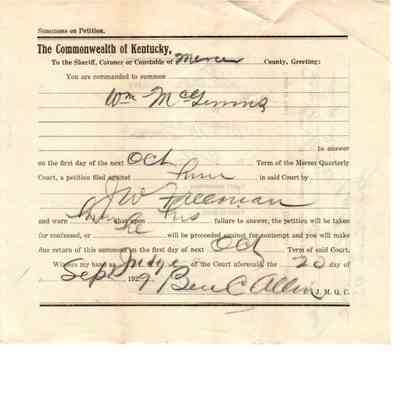 Summons on Petition.
The Commonwealth of Kentucky,
To the Sheriff, Coroner or Constable of Mercer County, Greeting:
You are commanded to summon
Wm McGinnis
to answer
on the first day of the next Oct Term of the Mercer Quarterly
Court, a petition filed against him in said Court by
J W Freeman
and warn him that upon his failure to answer, the petition will be taken
for confessed, or he will be proceeded against for contempt and you will make
due return of this summons on the first day of next Oct Term of said Court.
Witness my hand as Judge of the Court aforesaid, the 20 day of
Sept 1929. Ben C Allin J. M. Q. C.